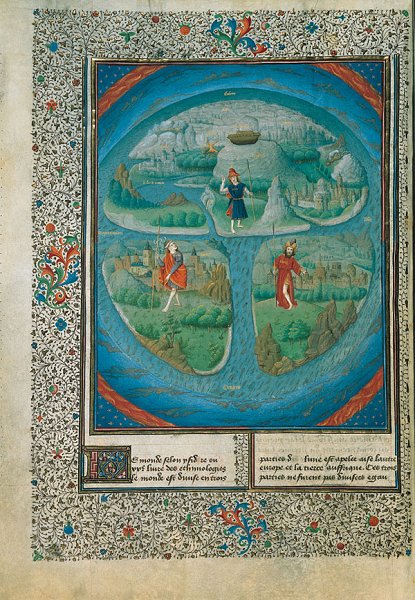 Le monde selon ysidore ou
xvᵉ livre des ethimologies
le monde est divise en trois
parties d lune est apelee asie lautre
europe et la tierce auffrique. Ces trois
parties ne furent pas divisees egau